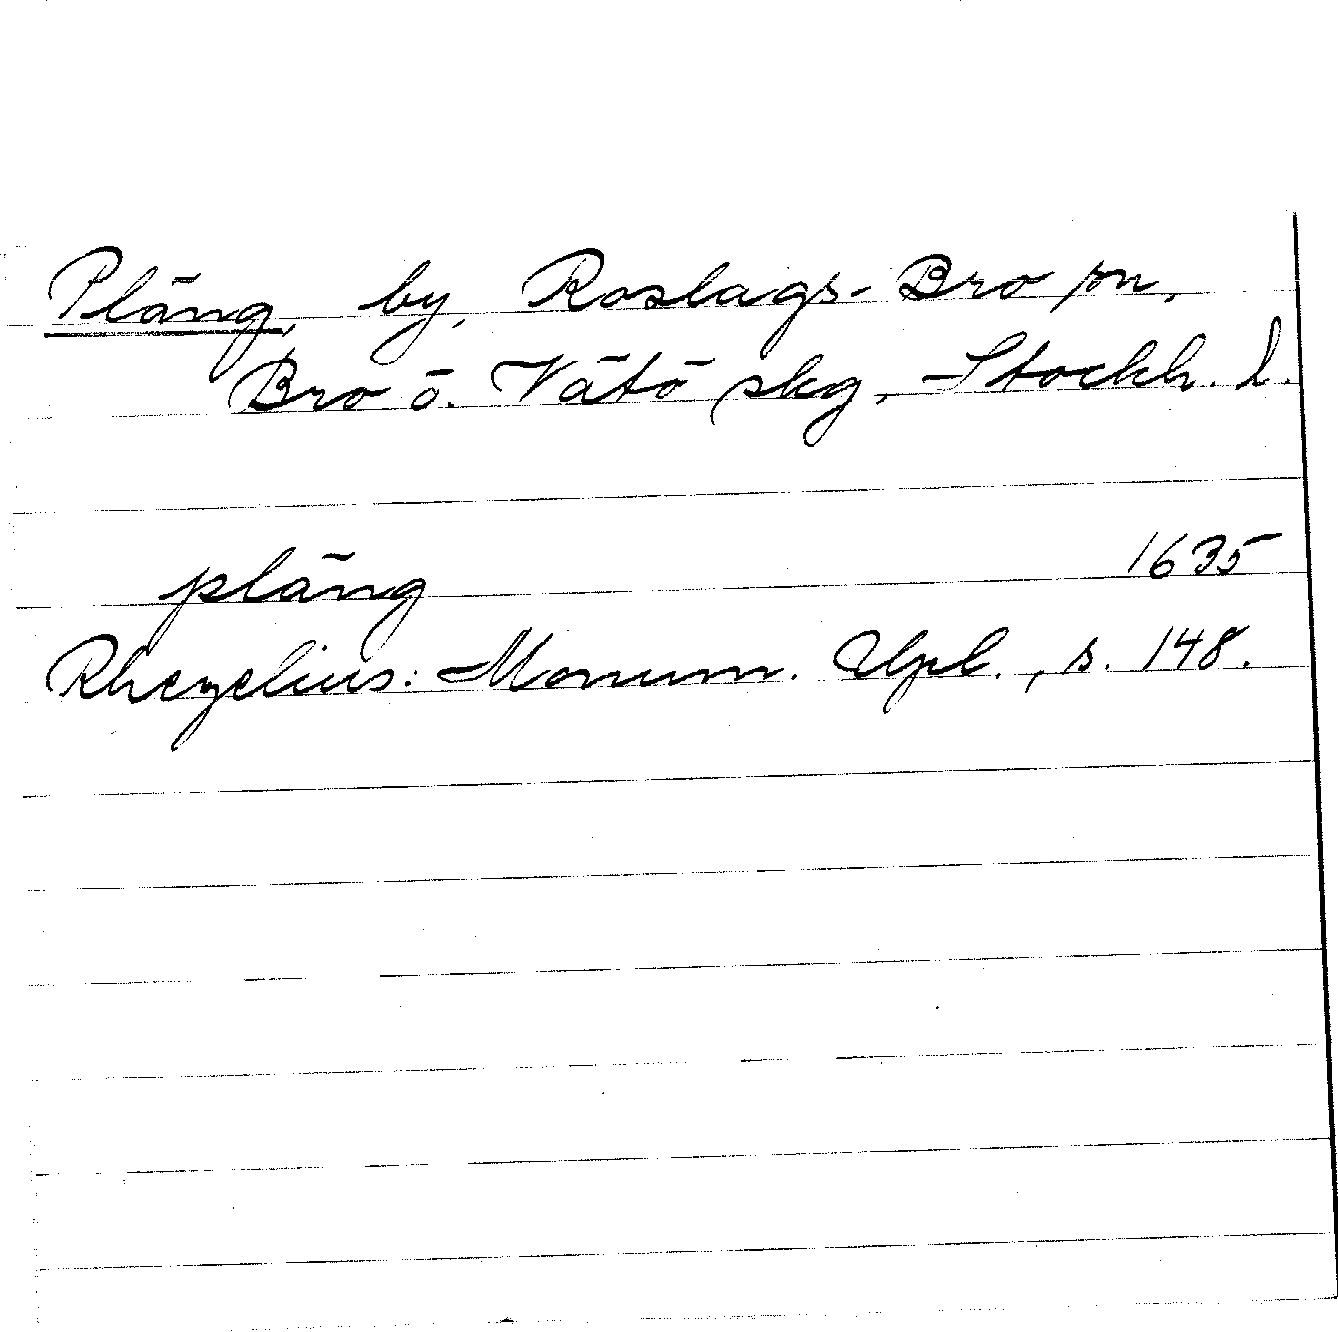 Pläng, by, Roslags-Bro sn,
Bro o. Vätö skg, Stockh. l.
pläng 1635
Rhezelius: Monum. Upl., s. 148.